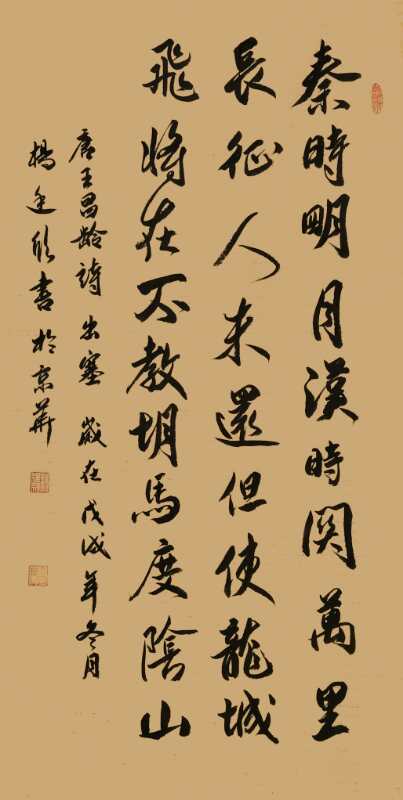 秦時明月漢時関萬里
長征人未還但使龍城
飛將在不教胡馬度陰山
唐王昌齡詩 出塞 歲在戊戌年冬月
楊書於京華